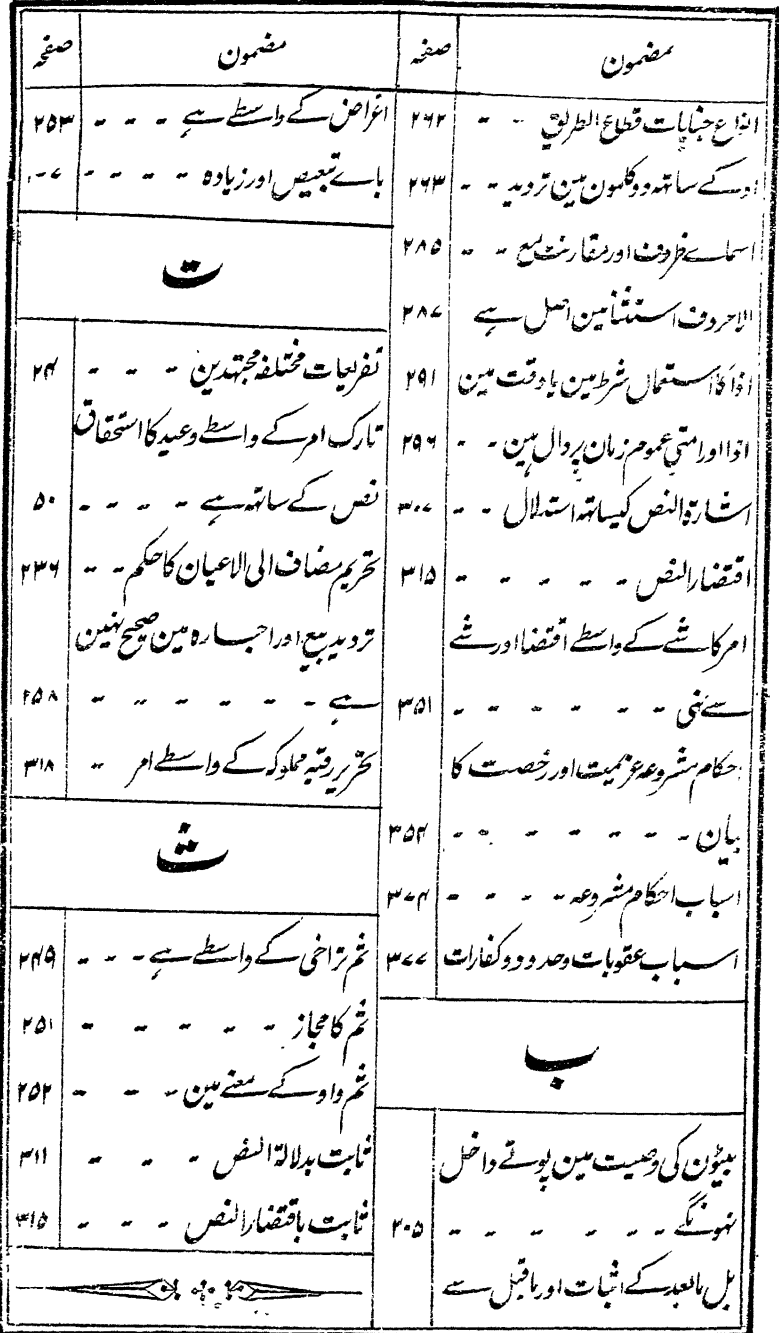 مضمون صفحہ
انواع جنایات قطاع الطریق ۲۶۲
او کے ساتھ دو کلمون مین تردید ۲۶۳
اسماے ظروف اور مقارنت مع ۲۸۵
الا حروف استثنا مین اصل ہے ۲۸۷
اذا کا استعمال شرط مین یا وقت مین ۲۹۱
اذا اور متی عموم زمان پر دال ہین ۲۹۶
اشارۃ النص کیساتھ استدلال ۳۰۷
اقتضار النص ۳۱۵
امر کا شے کے واسطے اقتضا اور شے
سے نہی ۳۵۱
احکام مشروعہ عزیمیت اور رخصت کا
بیان ۳۵۴
اسباب احکام مشروعہ ۳۷۴
اسباب عقوبات وحدود وکفارات ۳۷۷
ب
بیٹون کی وصیت مین پوتے داخل
نہونگے ۲۰۵
بل مابعد کے اثبات اور ماقبل سے
مضمون صفحہ
اغراض کے واسطے ہے ۲۵۳
باے تبعیض اور زیادہ
ت
تفریعات مختلفہ مجتہدین ۲۴
تارک امر کے واسطے وعید کا استحقاق
نص کے ساتھ ہے ۵۰
تحریم مضاف الی الاعیان کا حکم ۲۳۶
تردید بیع اور اجارہ مین صحیح نہین
ہے ۲۵۸
تحریر رقبہ مملوکہ کے واسطے امر ۳۱۸
ث
ثم تراخی کے واسطے ہے ۲۴۹
ثم کا مجاز ۲۵۱
ثم واو کے معنے مین ۲۵۲
ثابت بدلالۃ النص ۳۱۱
ثابت باقتضار النص ۳۱۵